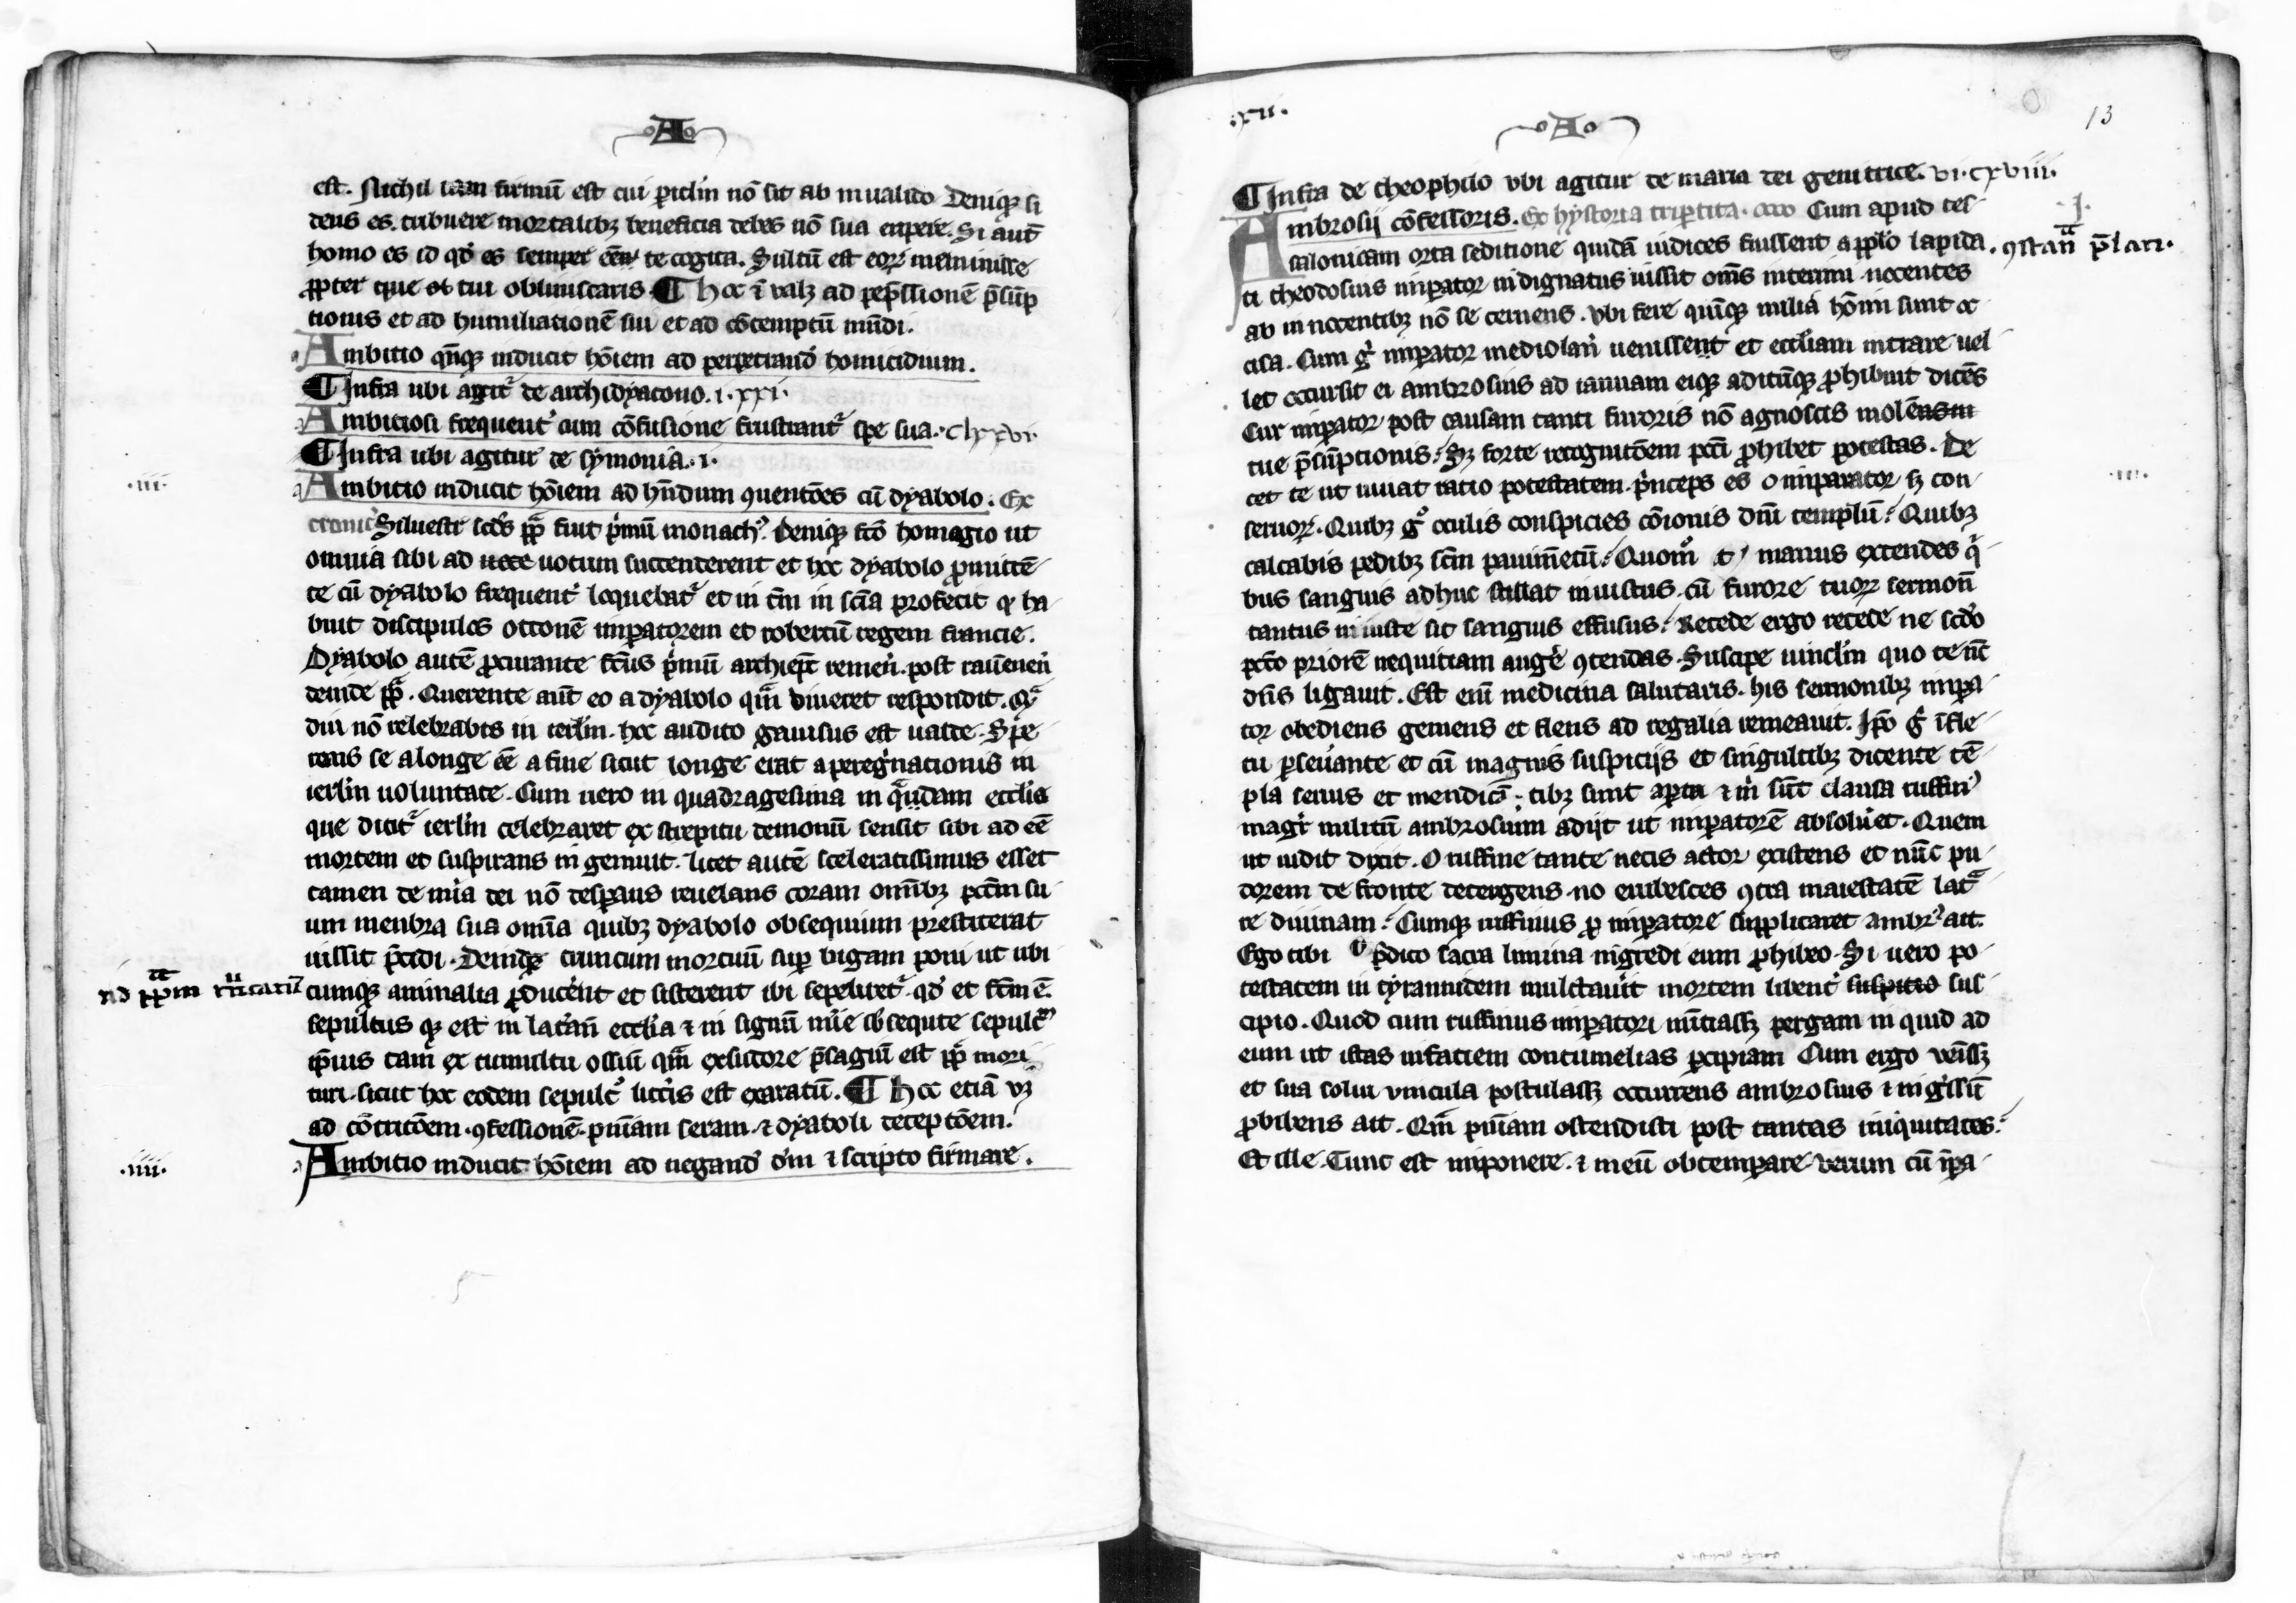 A
est. Nichil tam firmũ est cui ꝑiclm̃ nõ sit ab inualido Deniqꝫ si
deus es. tribuere mortalibꝫ beneficia debes nõ sua eripere. Si aut̃
homo es id qd̾ es semper eẽ te cogita. Stultũ est eoꝝ meminisse
ꝓpter que tui obliuiscaris ¶ Hoc ĩ ualꝫ ad rep̃ssionẽ p̃sũp
tionis et ad humiliationẽ sui et ad cõtemptũ mũdi.
Ambitio qñqꝫ inducit hõiem ad perpetrand̃ homicidium.
¶ Infra ubi agit᷑ de archidyacono. i. xxi.
Ambitiosi frequent̾ cum cõfusione frustrant᷑ spe sua. clxxvi.
¶ Infra ubi agitur de symonia. i.
.iii.
Ambitio inducit hõiem ad hñdum ꝯuentões cũ dyabolo. Ex
cronic̾ Siluestr̾ scd̾s pp̃ fuit p̾mũ monachꝰ. Deniqꝫ fc̃o homagio ut
omnia sibi ad uotum succenderent et hoc dyabolo ꝓmitte᷒
te cũ dyabolo frequent̾ loquebat᷑ et in tm̃ in scĩa profecit ꝙ ha
buit discipulos ottonẽ imꝑatorem et robertũ regem francie.
Dyabolo autẽ ꝓcurante fc̃us p̾mũ archiep̃c remen̾. post rauẽnen̾
deinde pp̃. Querente aut̃ eo a dyabolo qm̃ diu uiueret respondit. Qm̃
diu nõ celebrabis in ierlm̃. hoc audito gauisus est ualde. Spe
rans se a longe eẽ a fine sicut longe erat a peregrinationis in
ierlm̃ uoluntate. Cum uero in quadragesima in q̃dam ecclia
que dicit᷑ ierlm̃ celebraret ex strepitu demonũ sensit sibi ad eẽ
mortem et suspirans ingemuit. licet autẽ sceleratissimus esset
tamen de mĩa dei nõ desꝑans reuelans coram om̃ibꝫ pctm̃ su
um menbra sua om̃ia quibꝫ dyabolo obsequium prestiterat
iussit p̃cidi. Deniqꝫ truncum mortuũ suꝑ bigam poni ut ubi
cumqꝫ animalia ꝓducer̃nt et sisterent ibi sepeliret᷑. qd̾ et fc̃m ẽ.
sepultus qꝫ est in latãn ecclia ⁊ in signũ mĩe cõsequte sepulc᷑
ip̃ius tam ex tumultu ossiũ qm̃ ex sudore p̃sagiũ est pp̃ mori
turi. sicut hoc eodem sepulc̾ litt̾is est exaratũ. ¶ Hoc etiã uꝫ
ad cõtritõem. ꝯfessionẽ. pñiam seram. ⁊ dyaboli deceptõem.
.iiii.
Ambitio inducit hõiem ad negand̃ dm̃ ⁊ scripto firmare.
.xii.
A
13
¶ Infra de theophilo ubi agitur de maria dei genitrice. vi. cxviii.
.i.
Ambrosij cõfessoris. Ex hystoria triꝑtita. Cum apud tes
salonicam orta seditione quidã iudices fuissent a pp̃lo lapida
ꝯstan̄ p̃lati.
ti theodosius imꝑator indignatus iussit om̃s interimi. nocentes
ab innocentibꝫ nõ se cernens. Vbi fere quinqꝫ milia hõim sunt oc
cisa. Cum g̾ imꝑator mediolan̾ uenisset et ecclïam intrare uel
let occursit ei ambrosius ad ianuam eiqꝫ aditũqꝫ ꝓhibuit dicẽs
Cur imꝑator post causam tanti furoris nõ agnoscis molem
tue p̃sũptionis? Sꝫ forte recognitõem pcc̃i ꝓhibet potestas. De
.iii.
cet te ut uincat ratio potestatem. p̾nceps es o imꝑator sꝫ con
seruoꝝ. Quibꝫ g̾ oculis conspicies cõionis dñi templũ? Quibꝫ
calcabis pedibꝫ scm̃ pauimẽtũ? Quom̾ manus extendes q̾
bus sanguis adhuc stillat iniustus. cũ furore tuoꝝ sermon̄
tantus iniuste sit sanguis effusus? Recede ergo recede ne scd̾o
pctõ priorẽ nequitiam augẽ ꝯtendas. Suscipe uinclm̃ quo te nc̃
dñs ligauit. Est em̃ medicina salutaris. his sermonibꝫ imꝑa
tor obediens gemens et flens ad regalia remeauit. Ip̃o g̾ ĩ fle
tu ꝑseũante et cũ magnis suspicijs et singultibꝫ dicente tẽ
pla seruis et mendicis. tibꝫ sunt aꝑta ⁊ m̾ sũt clausa ruffinꝰ
magr̃ militũ ambrosium adijt ut imꝑatorẽ absolũet. Quem
ut uidit dixit. O ruffine tante necis actor existens et nũc pu
dorem de fronte detergens. no erubesces ꝯtra maiestatẽ latra
re diuinam? Cumqꝫ ruffinus ꝓ imꝑatore supplicaret ambrꝰ ait.
Ego tibi p̾dico sacra limina ingredi eum ꝓhibeo. Si uero po
testatem in tyrannidem multauit mortem libent̾ sus
cipio. Quod cum ruffinus imꝑatori nũtiassꝫ pergam inquid ad
eum ut istas in faciem contumelias ꝑcipiam Cum ergo uenissꝫ
et sua solui uincula postulassꝫ occurrens ambrosius ⁊ ingr̾ssũ
ꝓhibens ait. Qm̃ pñiam ostendisti post tantas iniquitates?
Et ille. Tunc est imponere. ⁊ meũ obtemꝑare. verum cũ ĩꝑa